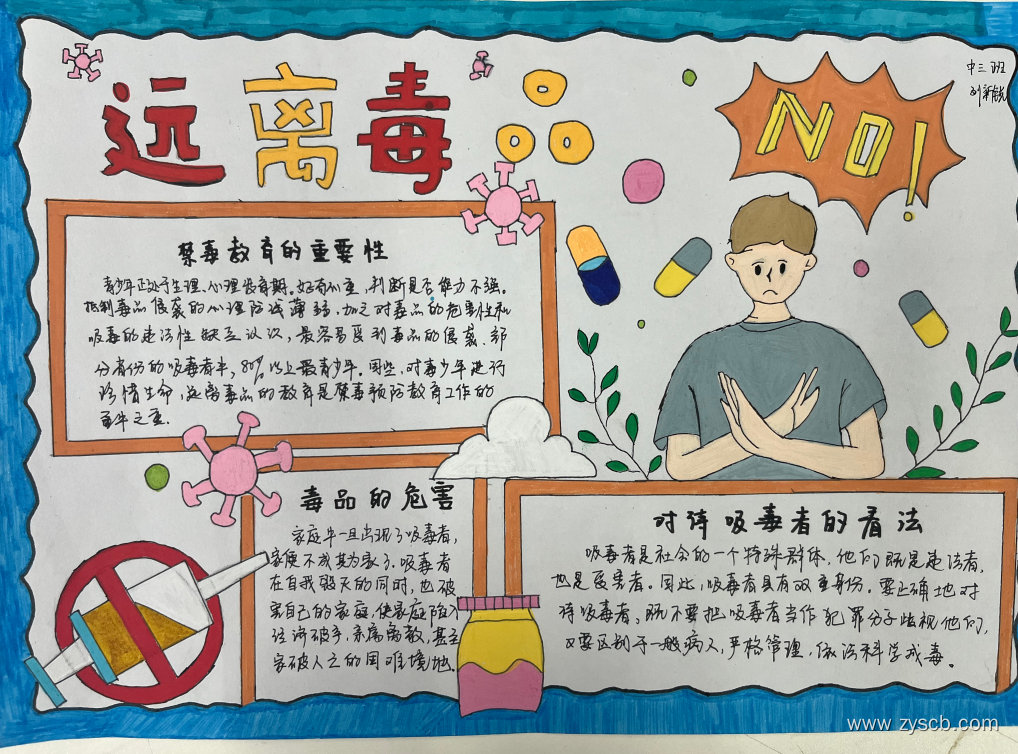 远离毒
NO!
中三班
禁毒教育的重要性
青少年正处于生理、心理发育期。好奇心重,判断是否能力不强。
抵制毒品侵袭的心理防线薄弱,加之对毒品的危害性和
吸毒的违法性缺乏认识,最容易受到毒品的侵袭、部
分省份的吸毒者中,80%以上是青少年。因此,对青少年进行
珍惜生命,远离毒品的教育是禁毒预防教育工作的
重中之重。
毒品的危害
家庭中一旦出现了吸毒者,
家便不成其为家了。吸毒者
在自我毁灭的同时,也破
害自己的家庭,使家庭陷入
经济破产、亲属离散,甚至
家破人亡的困难境地。
对待吸毒者的看法
吸毒者是社会的一个特殊群体,他们既是违法者,
也是受害者。因此,吸毒者具有双重身份。要正确地对
待吸毒者,既不要把吸毒者当作犯罪分子歧视他们,
又要区别于一般病人,严格管理,依法科学戒毒。
www.zyscb.com